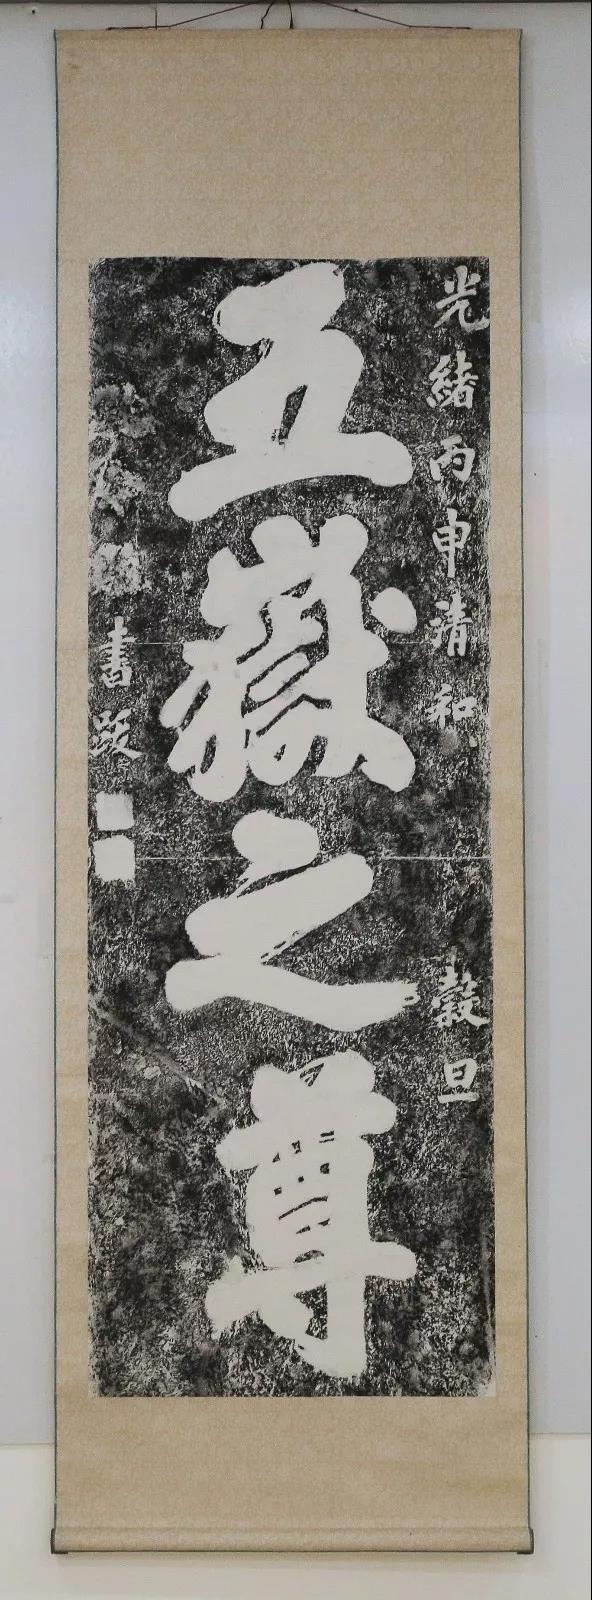 光緒丙申清和 穀旦
五嶽之尊
書